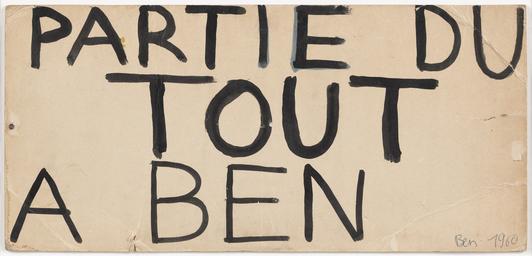 PARTIE DU
TOUT
A BEN
Ben 1960